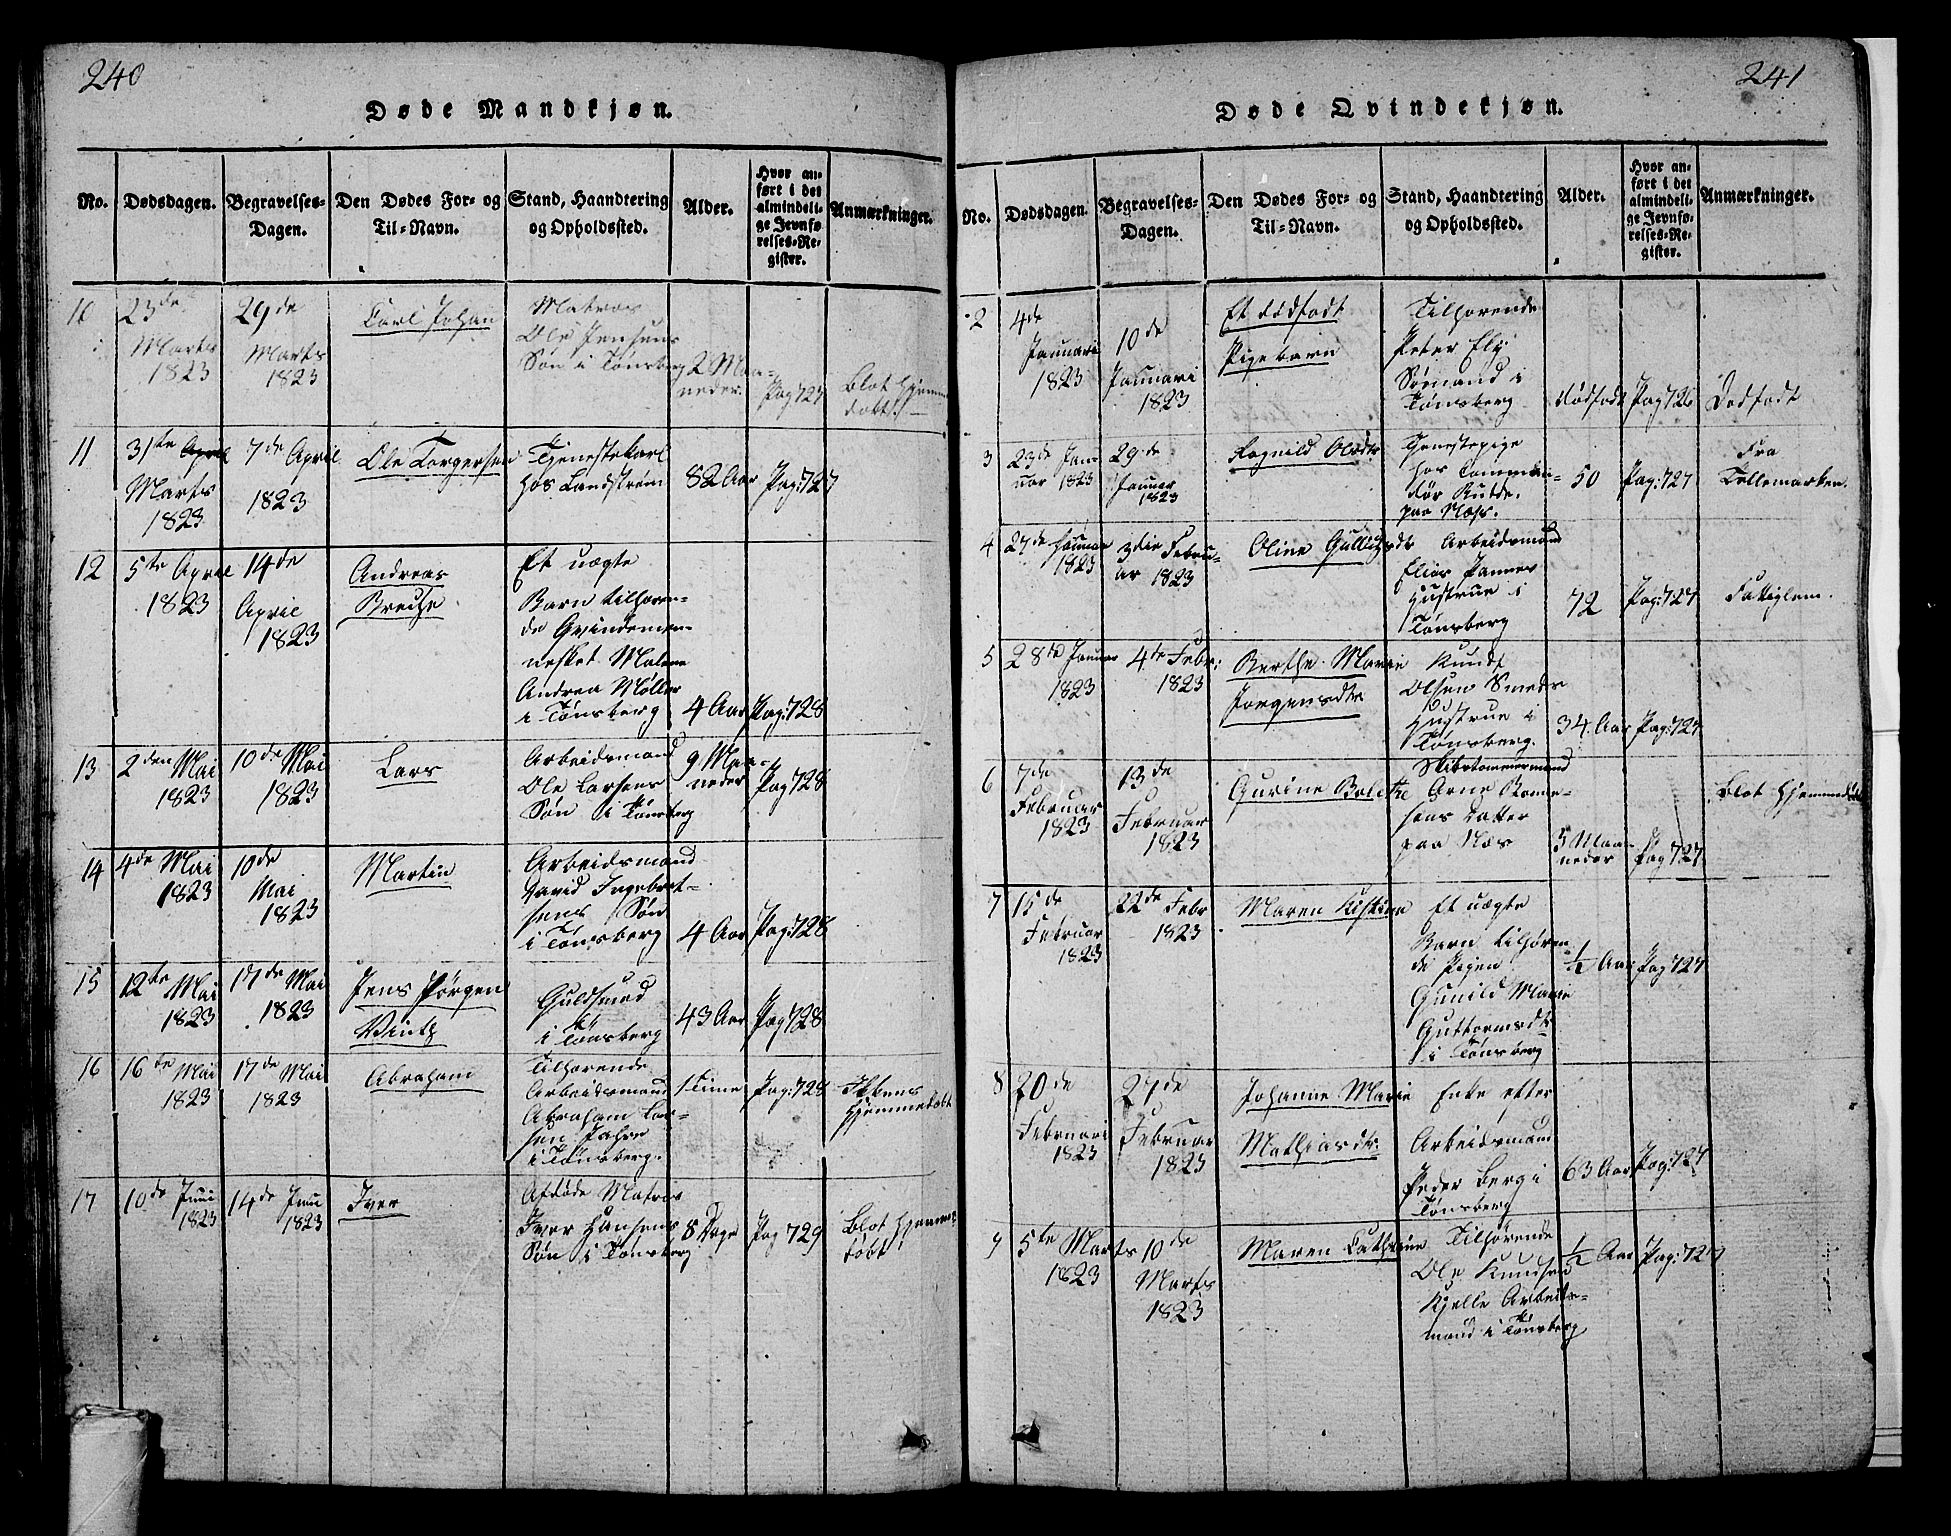 240
Døde Mandkjøn.
No.
Dødsdagen.
Begravelses-
Dagen.
Den Dødes For- og
Til-Navn.
Stand, Haandtering
og Opholdssted.
Alder.
Hvor an-
ført i det
almindeli-
ge Jevnfø-
relses-Re-
gister.
Anmærkninger.
10
23de
Marts
1823
29de
Marts
1823
Carl Johan
Matros
Ole Jensens
Søn i Tønsberg
2 Maa-
neder
Pag 727
blot hjemme
døbt
11
31te April
Marts
1823
7de April
1823
Ole Torgersen
Tjenestekarl
hos Landstrøm
82 Aar
Pag: 727
12
5te April
1823
14de
April
1823
Andreas
Et uægte
Barn tilhøren-
de Qvindemen-
nesket Malene
Andrea Møller
i Tønsberg
4 Aar
Pag: 728
13
2den Mai
1823
10de Mai
1823
Lars
Arbeidsmand
Ole Larsens
Søn i Tønsberg
9 Maa-
neder
Pag 728
14
4de Mai
1823
10de
Mai
1823
Martin
Arbeidsmand
David Ingebret-
sens Søn
i Tønsberg
4 Aar
Pag: 728
15
12te Mai
1823
17de Mai
1823
Jens Jørgen
Vintz
Guldsmed
i Tønsberg
43 Aar
Pag 728
16
16te Mai
1823
17de Mai
1823
Abraham
Tilhørende
Arbeidsmand
Abraham Lar-
sen
i Tønsberg.
1 Time
Pag: 728
hjemmedøbt
17
10de Juni
1823
14de Juni
1823
Iver
Afdøde Matros
Iver Hansens
Søn i Tønsberg
8 Dage
Pag 729
blot hjemme
døbt
241
Døde Qvindekjøn.
No.
Dødsdagen.
Begravelses-
Dagen.
Den Dødes For- og
Til-Navn.
Stand, Haandtering
og Opholdssted.
Alder.
Hvor an-
ført i det
almindeli-
ge Jevnfø-
relses-Re-
gister.
Anmærkninger.
2
4de
Januari
1823
10de
Januari
1823
Et dødfødt
Pigebarn
Tilhørende
Peter
Sømand i
Tønsberg
dødfødt
Pag 726
Dødfødt
3
23de Jan-
uar 1823
29de
Januar
1823
Ragnild Olsdtr
Tjenestepige
hos Comman-
dør Budde
paa Næs.
50
Pag: 727
Fra
Tellemarken.
4
27de Januar
1823
3die Febru-
ar 1823
Oline
Arbeidsmand
Elias
Hustrue i
Tønsberg
72
Pag: 727
Fattiglem.
5
28de Januar
1823
4de Febr:
1823
Berthe Marie
Jørgensdtr
Knudt
Olsen Smeds
Hustrue i
Tønsberg.
34 Aar
Pag: 727
6
7de
Februar
1823
13de
Februar
1823
Gurine
Skibstømmermand
Arne
sens Datter
paa Næs
5 Maa-
neder
Pag 727
blot hjemmedøbt
7
15de
Februar
1823
22de Febr
1823
Maren Kistine
Et uægte
Barn tilhøren-
de Pigen
Gunild Marie
Guttormsdtr
i Tønsberg
½ Aar
Pag 727
8
20de
Februari
1823
27de
Februar
1823
Johanne Marie
Mathiasdtr.
Enke efter
Arbeidsmand
Peder Berg i
Tønsberg
63 Aar
Pag: 727
9
5te Marts
1823
10de
Marts
1823
Maren Cathrine
Tilhørende
Ole Knudsen
Kjelle Arbeids-
mand i Tønsberg
½ Aar
Pag: 727